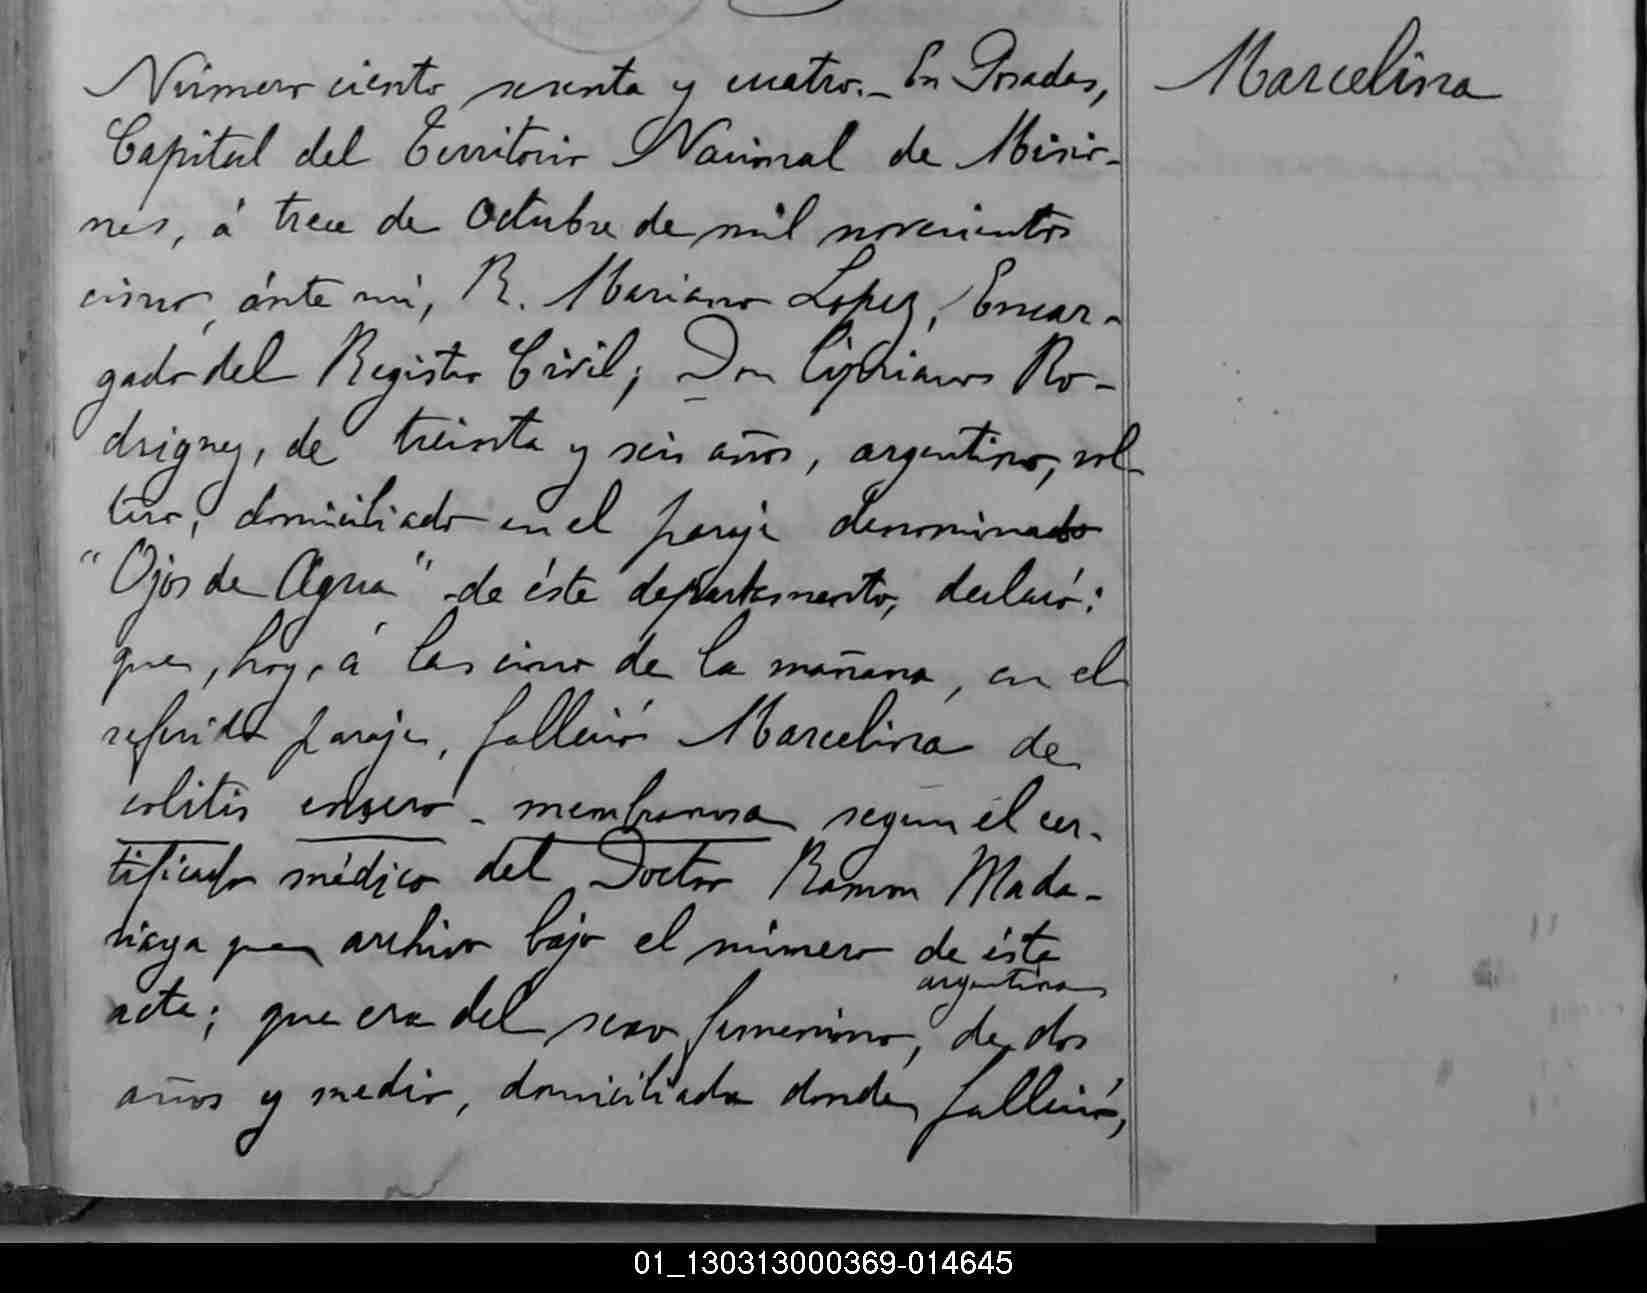 Número ciento sesenta y cuatro.- En Posadas,
Marcelina
Capital del Territorio Nacional de Misio-
nes, á trece de Octubre de mil novecientos
cinco, ánte mí, R. Mariano Lopez, Encar-
gado del Registro Civil; Don Cipriano Ro-
driguez, de treinta y seis años, argentino, sol
tero, domiciliado en el paraje denominado
"Ojos de Agua" de éste departamento, declaró:
que, hoy, á las cinco de la mañana, en el
referido paraje, falleció Marcelina de
colitis - membranosa según el cer-
tificado médico del Doctor Ramon Mada-
riaga que archivo bajo el número de ésta
argentina
acta; que era del sexo femenino, de dos
años y medio, domiciliada donde falleció,
01_130313000369-014645